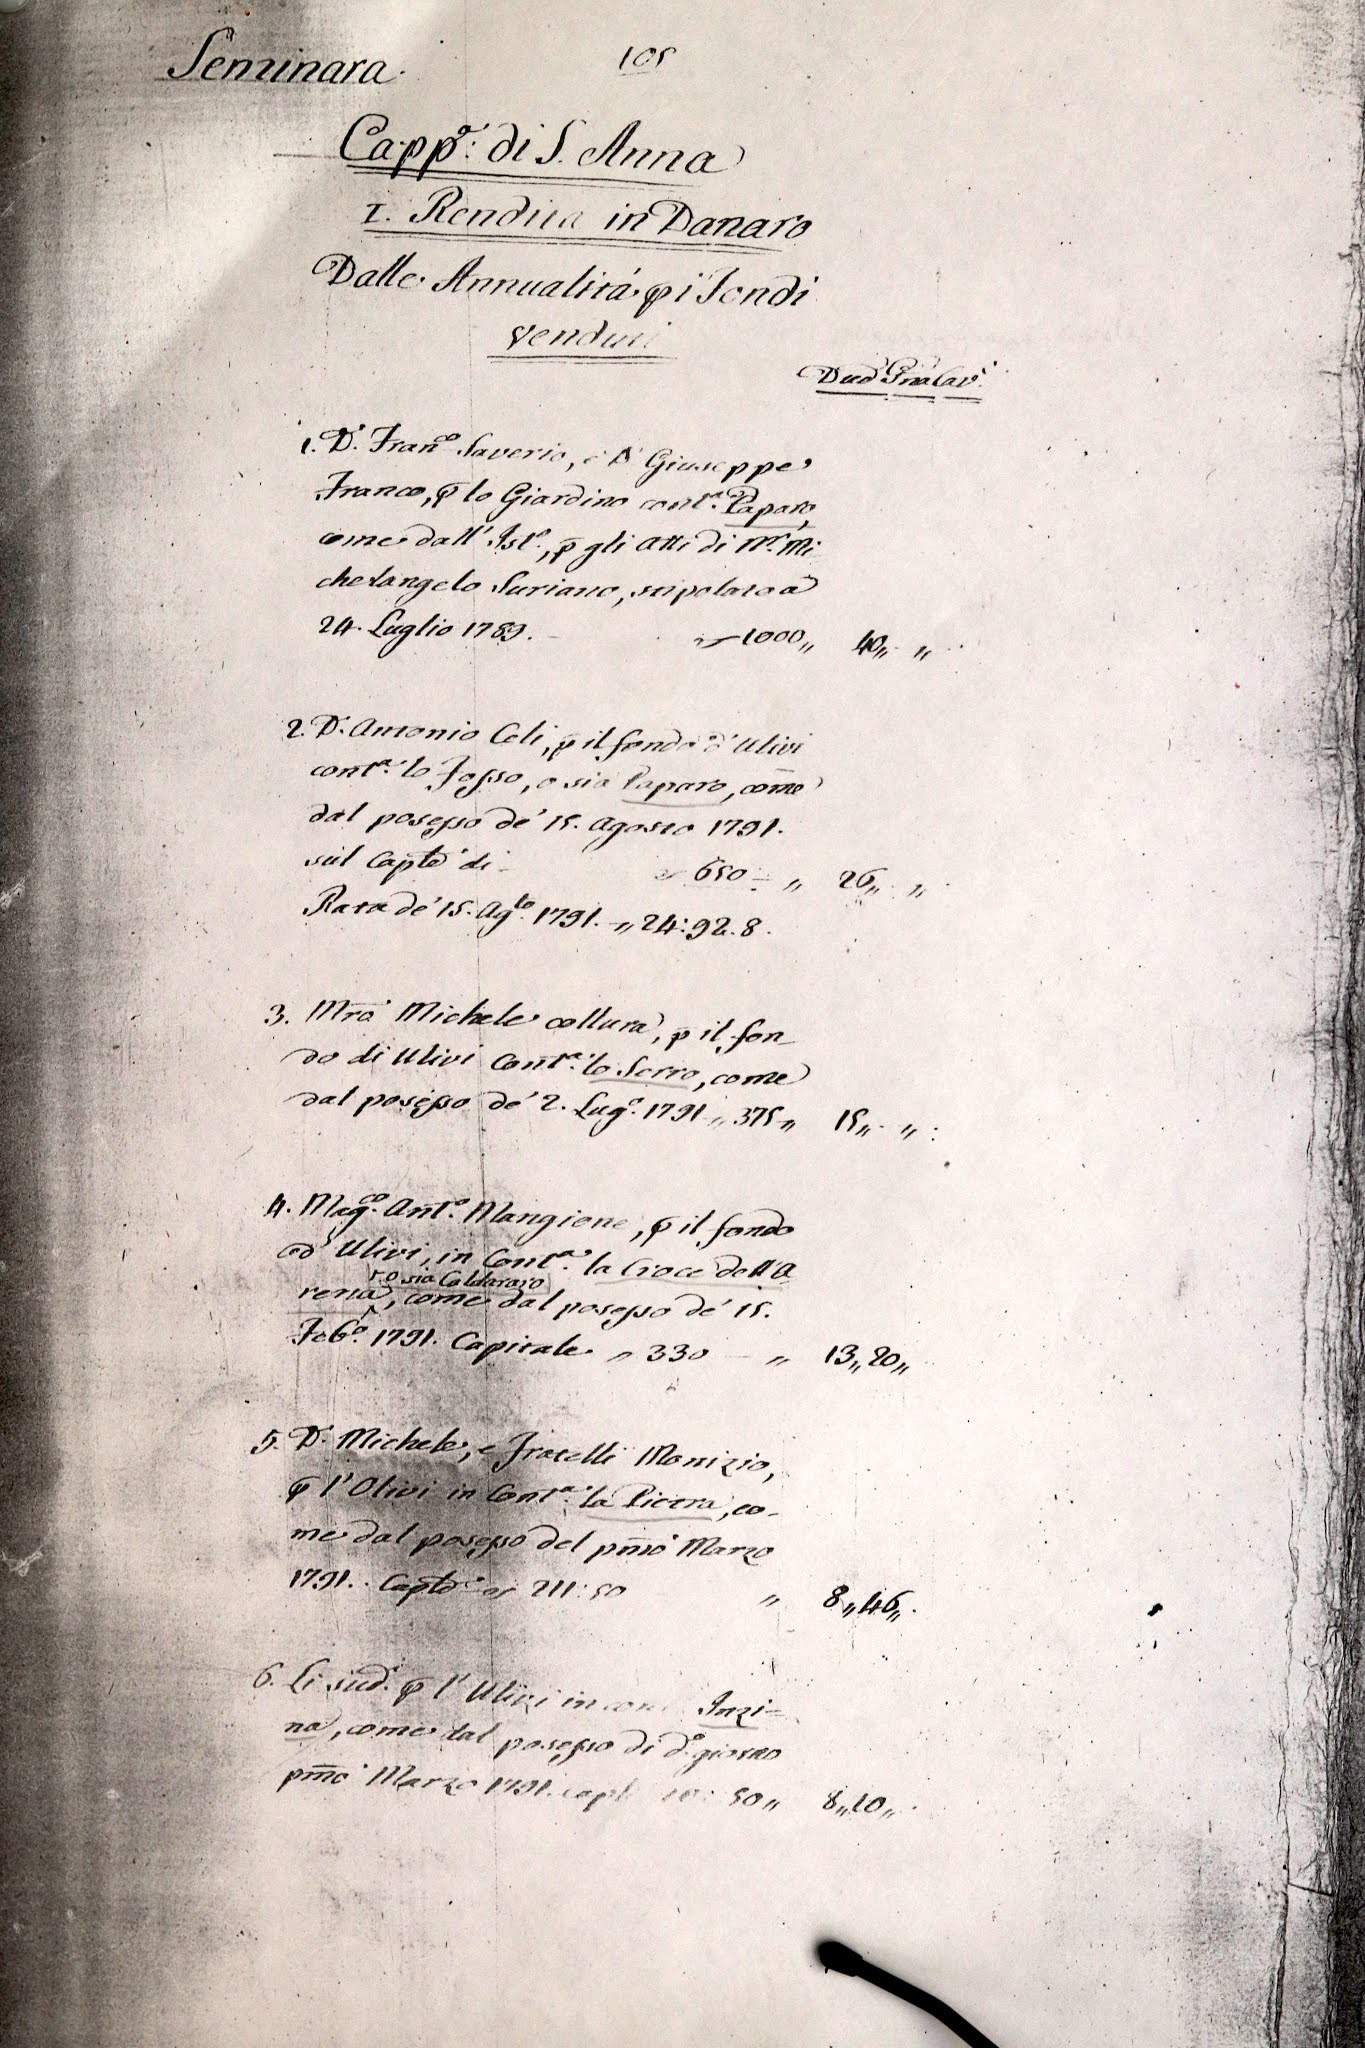 Seminara.
105
Capp.ª di S. Anna
I. Rendita in Danaro
Dalle Annualità p i Fondi
venduti
Duc.ⁱ G.na Cav.ⁱ
1. D. Fran.co Saverio, e D. Giuseppe
Franco, p lo Giardino cont.ª Paparo,
come dall' Ist.o, p gli atti di N.r Mi
chelangelo Suriano, stipolato a
24. Luglio 1789. 1000,, 40,, ,,
2. D. Antonio Celi, p il fondo d' Ulivi
cont.ª lo Fosso, o sia Paparo, come
dal possesso de' 15. Agosto 1791.
sul Cap.le di 650 ,, 26,, ,,
Rata de' 15. Ag.to 1791. ,, 24:92.8.
3. M.ro Michele Collura, p il fon
do di Ulivi Cont.ª lo Serro, come
dal possesso de' 2. Lug.o 1791 ,, 375,, 15,, ,,
4. Mag.co Ant.o Mangione, p il fondo
d' Ulivi, in Cont.ª la Croce dell'A
r. o sia Caldararo
rena, come dal possesso de' 15.
Feb.o 1791. Capitale ,, 330 ,, 13,,20,,
5. D. Michele, e Fratelli Monizio,
p l' Olivi in Cont.ª la Pietra, co-
me dal possesso del p.mo Marzo
1791. Cap.le 211:50 ,, 8,,46,,
6. Li sud.i p l' Ulivi in cont Inzi-
na, come dal possesso di d.o giorno
p.mo Marzo 1791. capl 50,, 8,,10,,